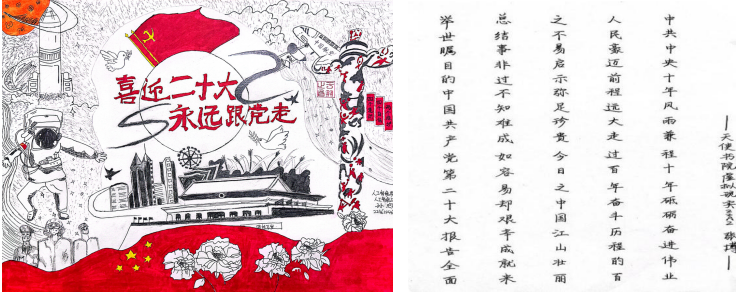 喜迎二十大
永远跟党走
举世瞩目的中国共产党第二十大报告全面
总结事非过不知难成如容易却艰辛成就来
之不易启示弥足珍贵今日之中国江山壮丽
人民豪迈前程远大走过百年奋斗历程的百
中共中央十年风雨兼程十年砥砺奋进伟业
——天使书院虚拟现实